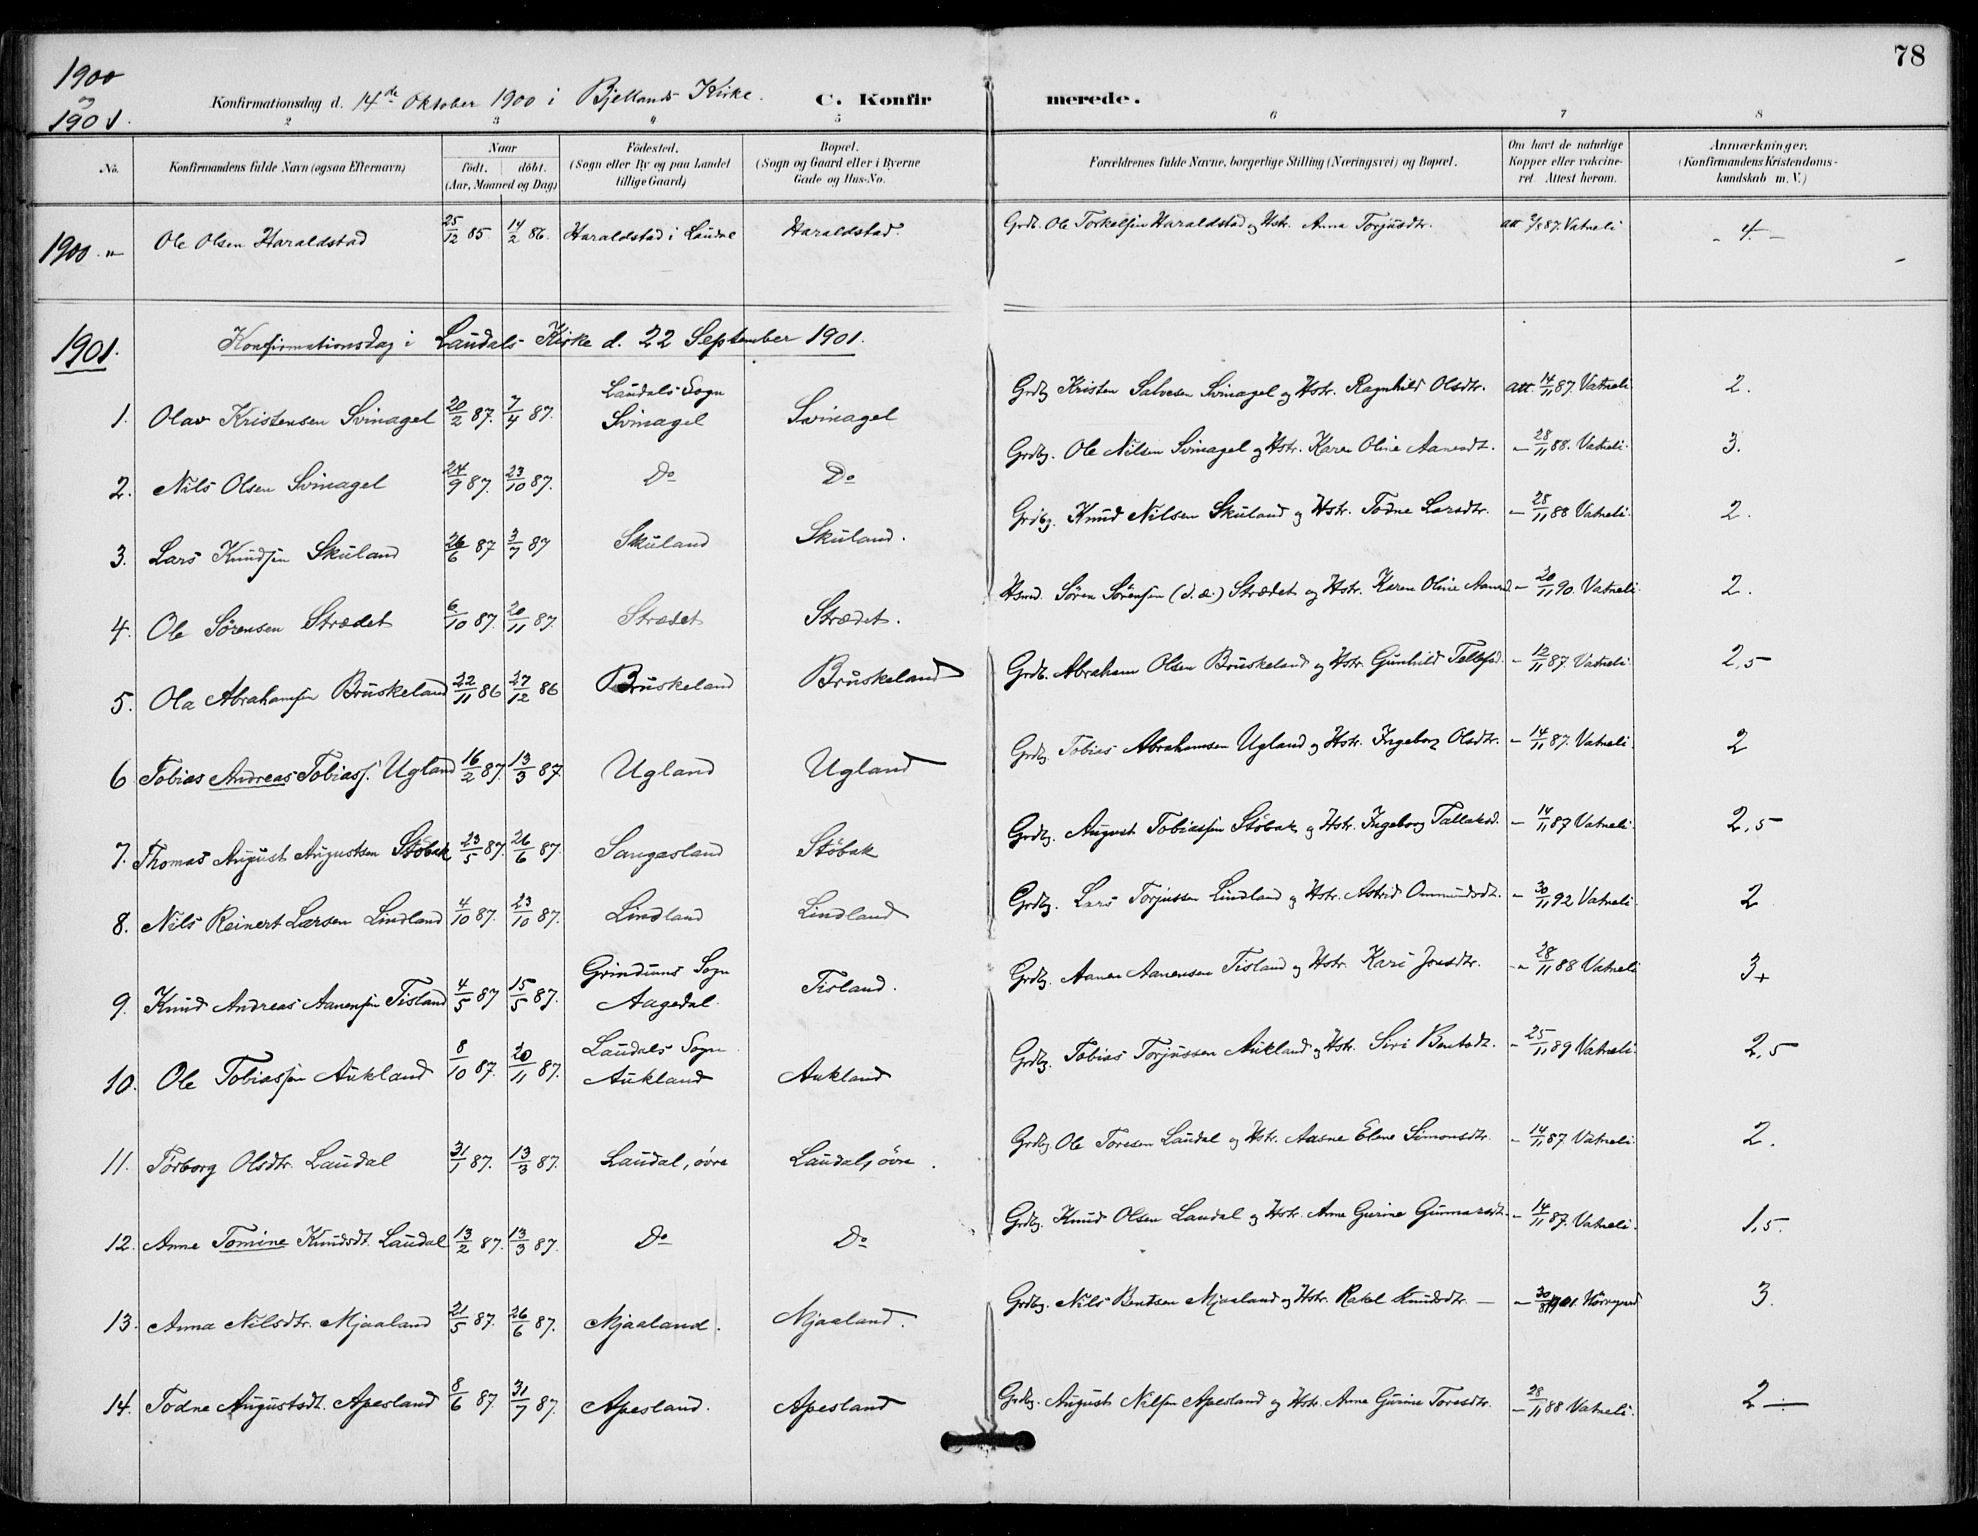 78
1900
og
1901.
Konfirmationsdag d. 14de Oktober 1900 i Bjellands Kirke. C. Konfirmerede.
2 3 4 5 6 7 8
No. Konfirmandens fulde Navn (ogsaa Efternavn) Naar födt. döbt. (Aar, Maaned og Dag) Födested. (Sogn eller By og paa Landet tillige Gaard) Bopæl. (Sogn og Gaard eller i Byerne Gade og Hus-No. Forældrenes fulde Navne, borgerlige Stilling (Næringsvei) og Bopæl. Om havt de naturlige Kopper eller vakcineret. Attest herom. Anmærkninger. (Konfirmandens Kristendomskundskab m. V.)
1900. " Ole Olsen Haraldstad 25/12 85 14/2 86. Haraldstad i Laudal Haraldstad. Grdb. Ole Torkelsen Haraldstad og Hstr. Anna Torjusdtr. att 87. Vatneli - 4. -
1901. Konfirmationsdag i Laudals Kirke d. 22 September 1901.
1. Olav Kristensen Svinagel 20/2 87. 7/4 87. Laudals Sogn Svinagel Svinagel Grdbg Kristen Salvesen Svinagel og Hstr. Ragnhild Olsdtr. att. 14/11 87. Vatneli 2.
2. Nils Olsen Svinagel 24/9 87. 23/10 87. Do Do Grdbg. Ole Nilsen Svinagel og Hstr. Karen Oline Aanendt. - 28/11 88. Vatneli. 3.
3. Lars Knudsen Skuland 26/6 87 3/7 87 Skuland Skuland. Grdbg. Knud Nilsen Skuland og Hstr. Todne Larsdtr. - 28/11 88 Vatneli. 2.
4. Ole Sörensen Strædet 6/10 87. 20/11 87. Strædet Strædet. Hsmd. Sören Sörensen (d. æ.) Strædet og Hstr. Karen Oline Aanend - 20/11 90. Vatneli. 2.
5. Ola Abrahamsen Bruskeland 22/11 86 27/12 86 Bruskeland Bruskeland Grdb. Abraham Olsen Bruskeland og Hstr. Gunhild Tellefsd. - 12/11 87. Vatneli 2,5
6 Tobias Andreas Tobiass. Ugland 16/2 87. 13/3 87. Ugland Ugland Grdbg. Tobias Abrahamsen Ugland og Hstr. Ingeborg Olsdtr. - 14/11 87. Vatneli. 2
7. Thomas August Augustsen Stöbak 23/5 87. 26/6 87. Sangesland Stöbak Grdbg. August Tobiassen Stöbak og Hstr. Ingeborg Tallaksd. - 14/11 87 Vatneli. 2,5
8. Nils Reinert Larsen Lindland 4/10 87. 23/10 87. Lindland Lindland Grdbg. Lars Torjussen Lindland og Hstr. Astrid Ommundsdt. - 30/11 92 Vatneli. 2
9. Knud Andreas Aanensen Tisland 4/5 87 15/5 87. Grindums Sogn Aagedal. Tisland. Grdbg. Aanen Aanensen Tisland og Hstr. Kari Jonsdtr. - 28/11 88 Vatneli 3+
10. Ole Tobiassen Aukland 8/10 87. 20/11 87. Laudals Sogn. Aukland Aukland Grdbg. Tobias Torjussen Aukland og Hstr. Siri Bentsdt. - 25/11 89 Vatneli. 2,5
11. Torborg Olsdtr. Laudal 31/1 87. 13/3 87. Laudal, övre Laudal, övre. Grdbg Ole Toresen Laudal og Hstr. Aasne Elene Simonsdtr. - 14/11 87. Vatneli. 2.
12. Anne Tomine Knudsdt. Laudal 13/2 87. 13/3 87. Do Do Grdbg. Knud Olsen Laudal og Hstr. Anne Gurine Gunnarsdt. - 14/11 87. Vatneli. 1,5.
13. Anna Nilsdtr. Mjaaland 21/5 87. 26/6 87. Mjaaland. Mjaaland. Grdbg. Nils Bentsen Mjaaland og Hstr. Rakel Knudsdtr. - - 30/8 1901. 3.
14. Todne Augustsdt. Apesland 8/6 87. 31/7 87. Apesland. Apesland Grdbg. August Nilsen Apesland og Hstr. Anne Gurine Toresdtr. - 28/11 88 Vatneli. 2 -